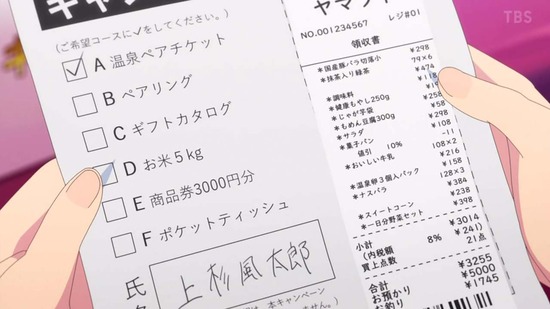 TBS
キャン
(ご希望コースに✓をしてください。)
A 温泉ペアチケット
B ペアリング
C ギフトカタログ
D お米5kg
E 商品券3000円分
F ポケットティッシュ
氏
上杉風太郎
は、本キャンペーン
ません。)
ヤマ
NO.001234567 レジ#01
領収書
*国産豚バラ切落小 ¥298
*抹茶入り緑茶 79×6
¥474
*調味料
*健康もやし250g
*じゃが芋袋
*もめん豆腐300g ¥258
*サラダ ¥298
*菓子パン ¥108
値引 10% -11
*おいしい牛乳 108×2
¥216
¥158
*温泉卵3個入パック 128×3
*ナスバラ ¥384
¥238
*スイートコーン ¥398
*一日分野菜セット
小計 ¥3014
(内税額 8% ¥241)
買上点数 21点
合計 ¥3255
お預かり ¥5000
お釣り ¥1745